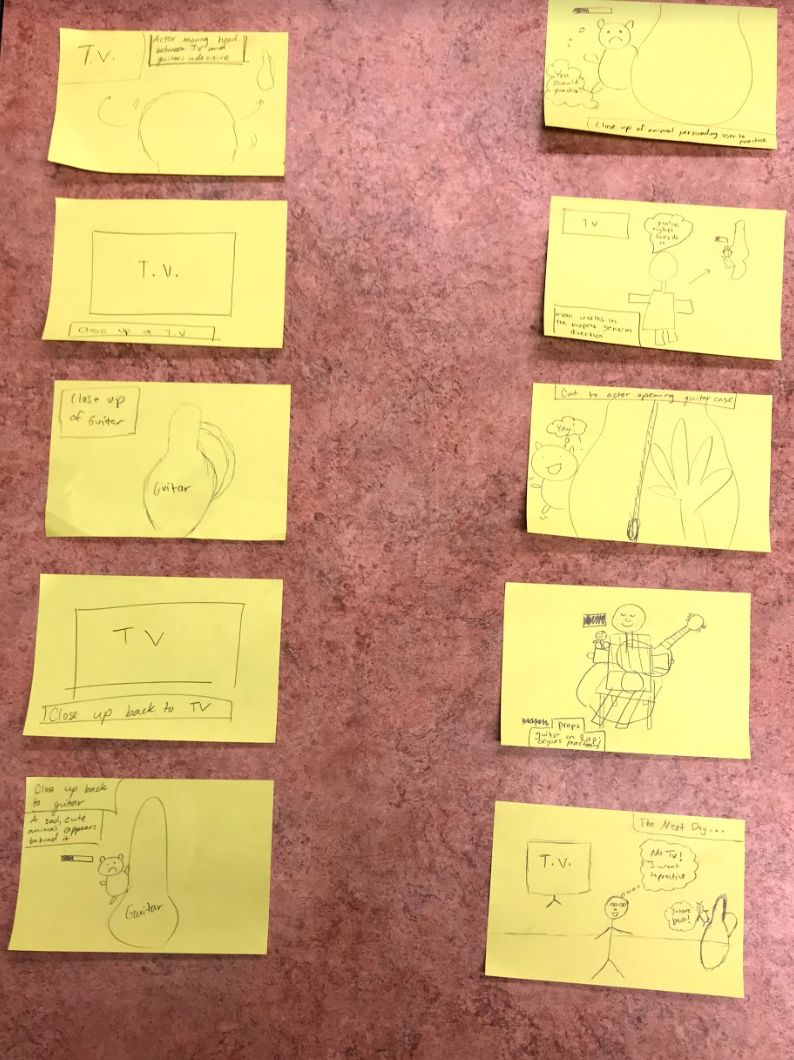 T.V.
Actor moving head
between TV and
guitar; indecisive
T.V.
Close up of T.V
Close up
of Guitar
Guitar
TV
Close up back to TV
Close up back
to guitar
A sad, cute
animal appears
behind it
Guitar
You
should
practice!
Close up of animal persuading user to
practice
TV
you're
right!
it
man walks in
the puppets general
direction
Cut to actor opening guitar case
Yay!
props
guitar on lap;
begins practicing
The Next Day...
T.V.
No TV!
I want
to practice
back!